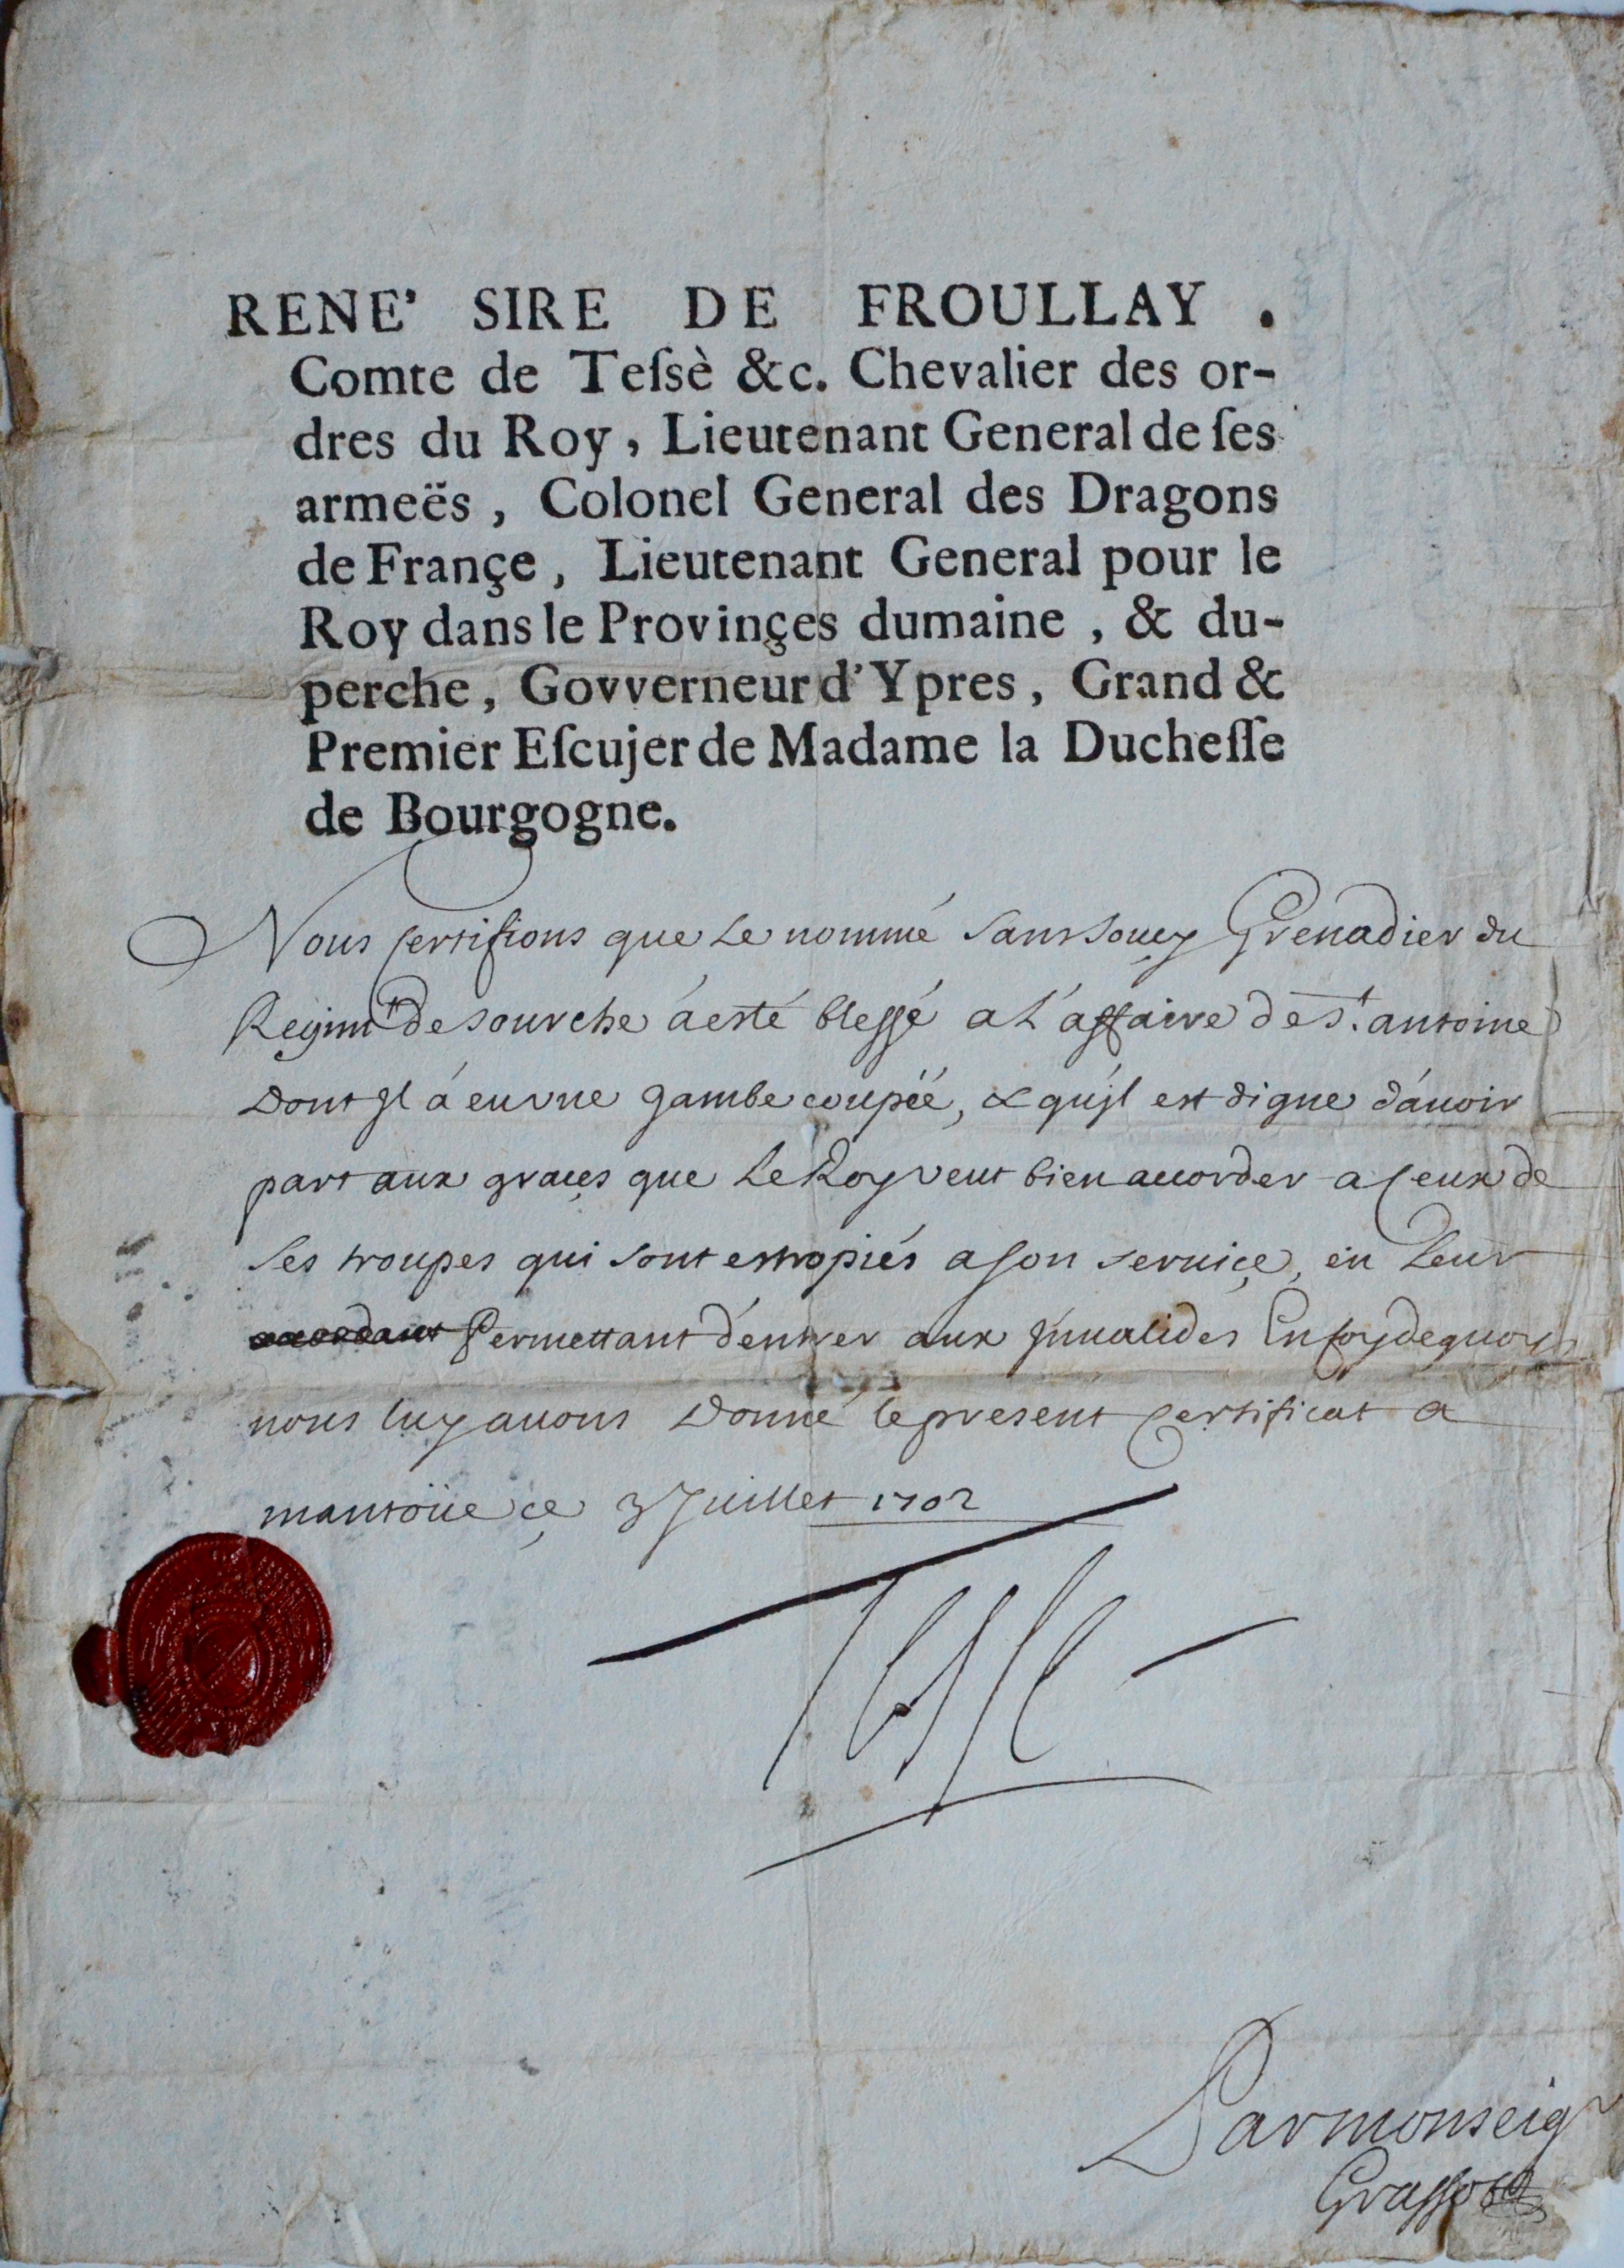 RENE' SIRE DE FROULLAY .
Comte de Teſsè &c. Chevalier des or-
dres du Roy, Lieutenant General de ſes
armeës, Colonel General des Dragons
de Françe, Lieutenant General pour le
Roy dans le Provinçes dumaine, & du-
perche, Govverneur d'Ypres, Grand &
Premier Eſcujer de Madame la Ducheſſe
de Bourgogne.
Nous certifions que le nommé sanssouçy Grenadier du
Regimt de sourche á esté blessé a L'affaire de St. antoine
Dont Jl á eu vne Jambe coupéé, & qu'jl est digne d'áuoir
part aux graçes que Le Roy veut bien accorder a ceux de
ses troupes qui sont estropiés a son seruiçe, en Leur
accordant Permettant d'entrer aux Jnualides En foy de quoy
nous luy auons Donné le present certificat a
mantoüe çe 3 Juillet 1702
Tesse
Par monseigr
Grasso